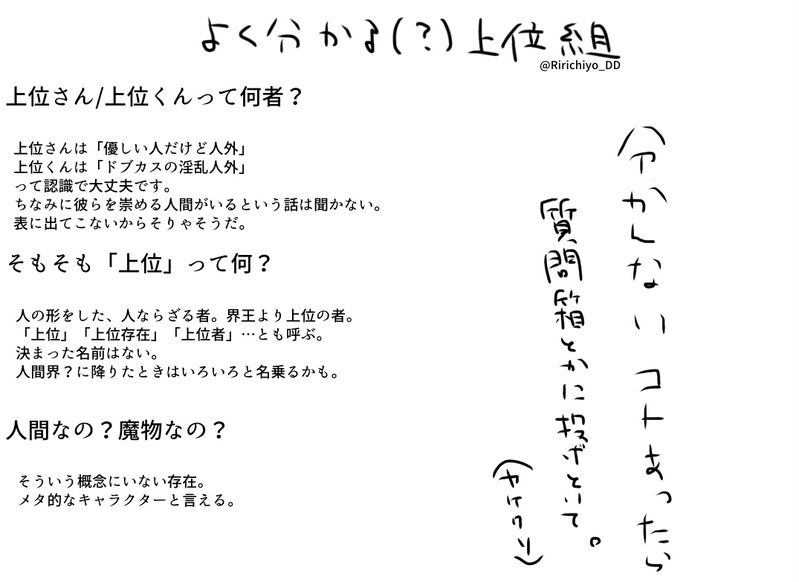 よく分かる(？)上位組
@Ririchiyo_DD
上位さん/上位くんって何者？
上位さんは「優しい人だけど人外」
上位くんは「ドブカスの淫乱人外」
って認識で大丈夫です。
ちなみに彼らを崇める人間がいるという話は聞かない。
表に出てこないからそりゃそうだ。
そもそも「上位」って何？
人の形をした、人ならざる者。界王より上位の者。
「上位」「上位存在」「上位者」…とも呼ぶ。
決まった名前はない。
人間界？に降りたときはいろいろと名乗るかも。
人間なの？魔物なの？
そういう概念にいない存在。
メタ的なキャラクターと言える。
分かんないコトあったら
質問箱とかに投げといて。
(ヤケクソ)